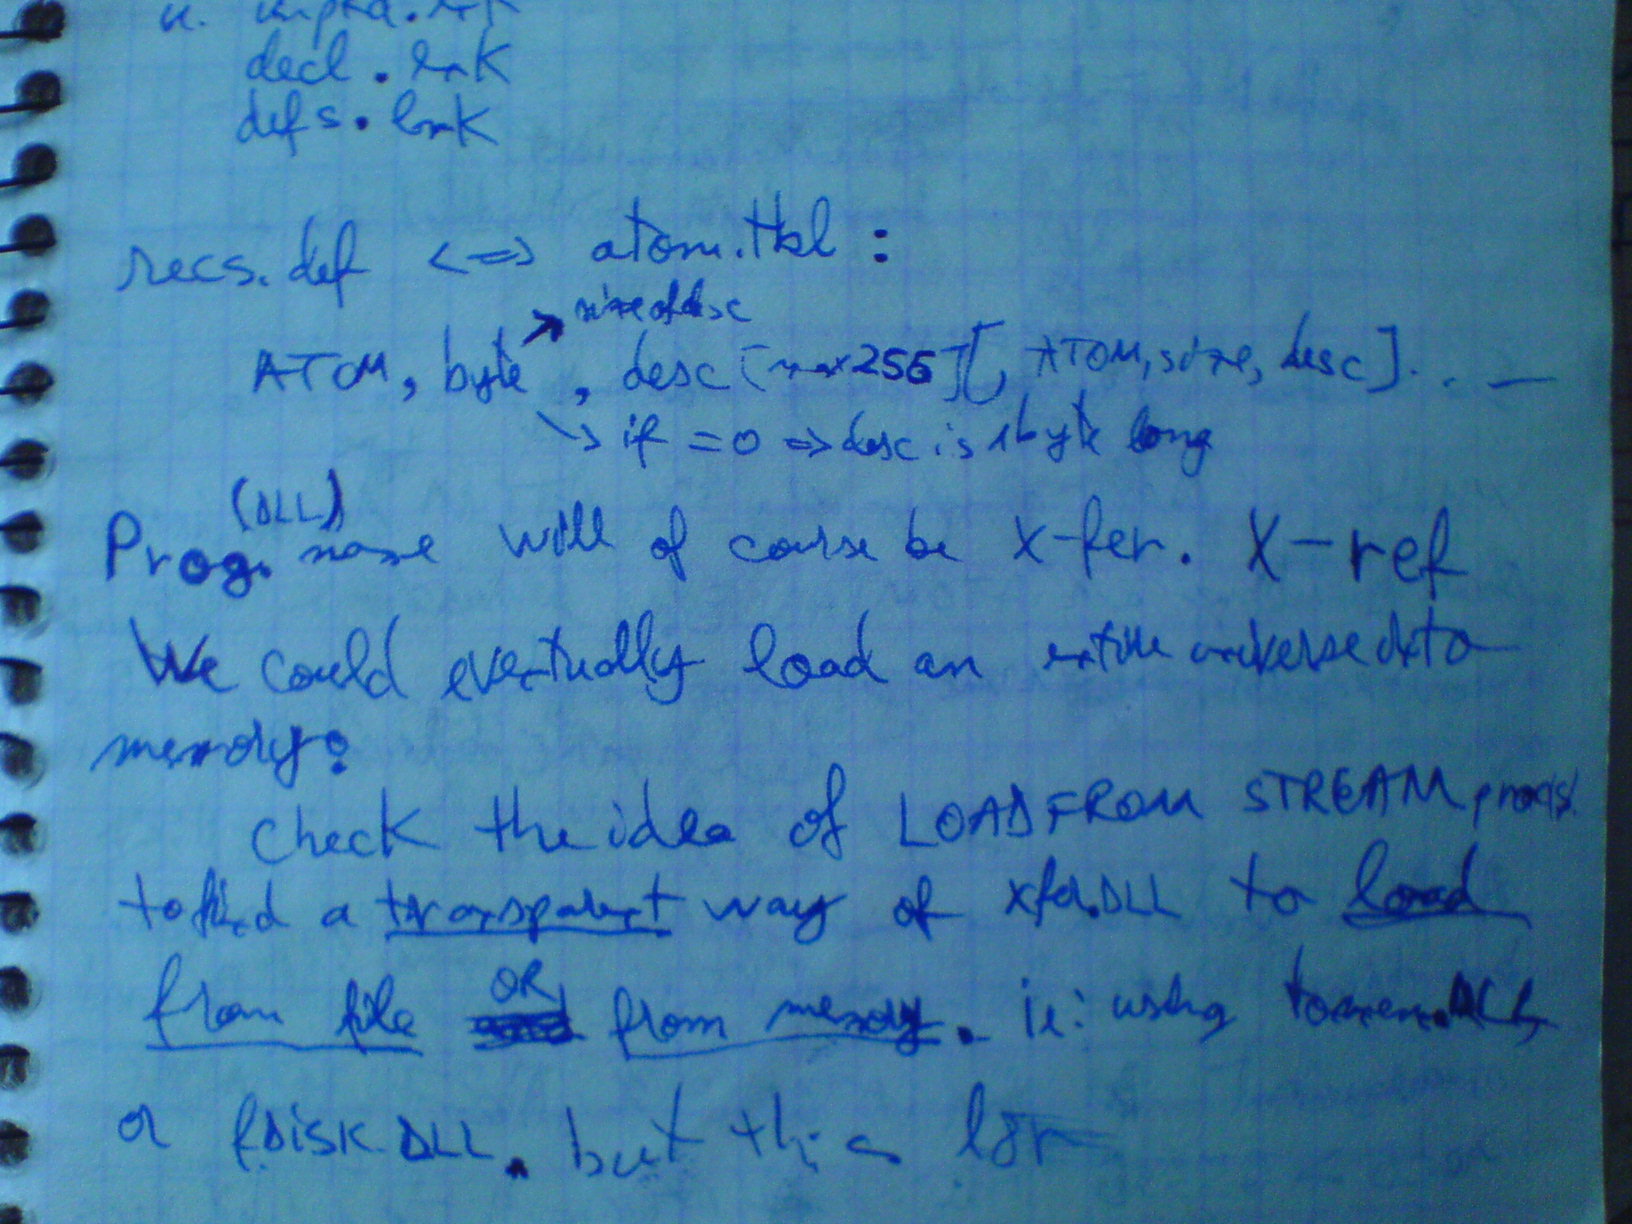 decl.lnk
defs.lnk
recs.def <=> atom.tbl :
→ size of desc
ATOM, byte, desc [max 256] [, ATOM, size, desc] . . —
↘ if = 0 => desc is 1 byte long
(DLL)
Prog. name will of course be x-fer. X-ref
We could eventually load an entire universe into
memory.
Check the idea of LOADFROM STREAM proc(s).
to find a transparent way of xfer.DLL to load
from file OR from memory. ie: using
or fDISK.DLL. but this